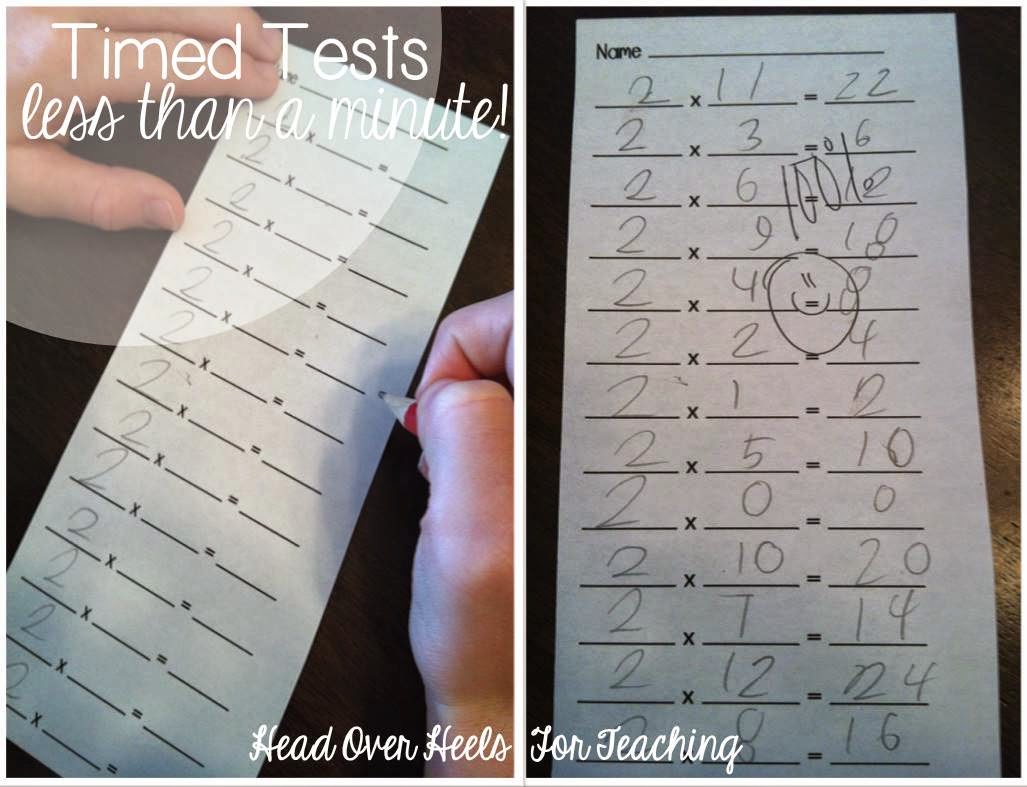 Timed Tests
less than a minute!
2 x ___ =
2 x ___ =
2 x ___ =
2 x ___ =
2 x ___ =
2 x ___ =
2 x ___ =
2 x ___ =
2 x ___ =
2 x ___ =
2 x ___ =
2 x ___ =
Name
2 x 11 = 22
2 x 3 = 6
2 x 6 = 12
2 x 9 = 18
2 x 4 = 8
2 x 2 = 4
2 x 1 = 2
2 x 5 = 10
2 x 0 = 0
2 x 10 = 20
2 x 7 = 14
2 x 12 = 24
2 x 8 = 16
100%
Head Over Heels For Teaching